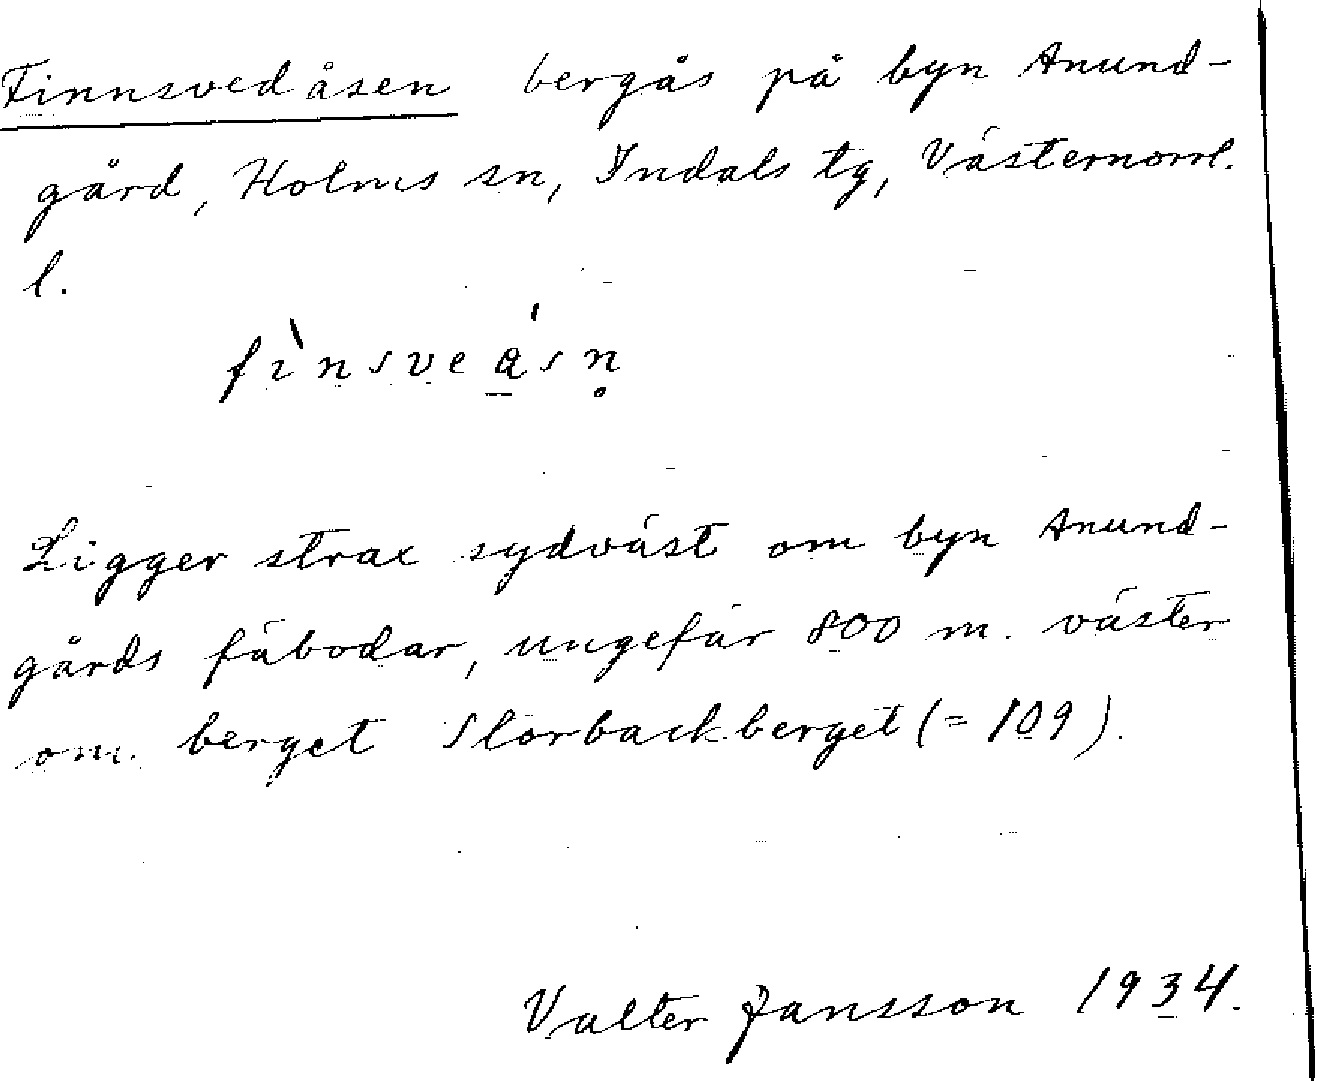 Finnsvedåsen bergås på byn Anund-
gård, Holms sn, Indals tg, Västernorrl.
l.
fìnsveásn̥
Ligger strax sydväst om byn Anund-
gårds fäbodar, ungefär 800 m. väster
om berget Storbackberget (= 109).
Valter Jansson 1934.